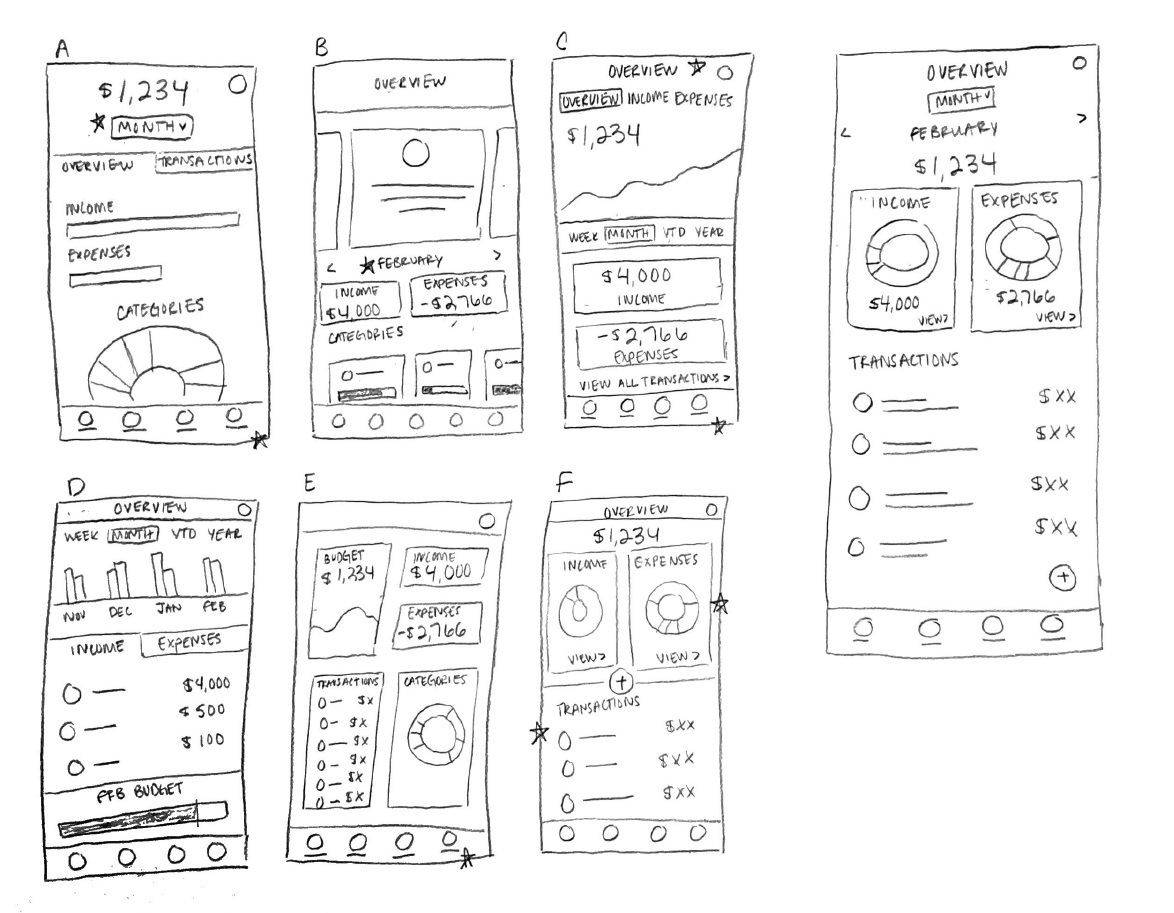 A
$1,234
MONTH
OVERVIEW TRANSACTIONS
INCOME
EXPENSES
CATEGORIES
B
OVERVIEW
< FEBRUARY >
INCOME
$4,000
EXPENSES
-$2,766
CATEGORIES
C
OVERVIEW
OVERVIEW INCOME EXPENSES
$1,234
WEEK MONTH YTD YEAR
$4,000
INCOME
-$2,766
EXPENSES
VIEW ALL TRANSACTIONS >
OVERVIEW
MONTH
< FEBRUARY >
$1,234
INCOME
$4,000
VIEW >
EXPENSES
$2,766
VIEW >
TRANSACTIONS
$XX
$XX
$XX
$XX
+
D
OVERVIEW
WEEK MONTH YTD YEAR
NOV DEC JAN FEB
INCOME EXPENSES
$4,000
$500
$100
FEB BUDGET
E
BUDGET
$1,234
INCOME
$4,000
EXPENSES
-$2,766
TRANSACTIONS
$X
$X
$X
$X
$X
$X
CATEGORIES
F
OVERVIEW
$1,234
INCOME
VIEW >
EXPENSES
VIEW >
+
TRANSACTIONS
$XX
$XX
$XX